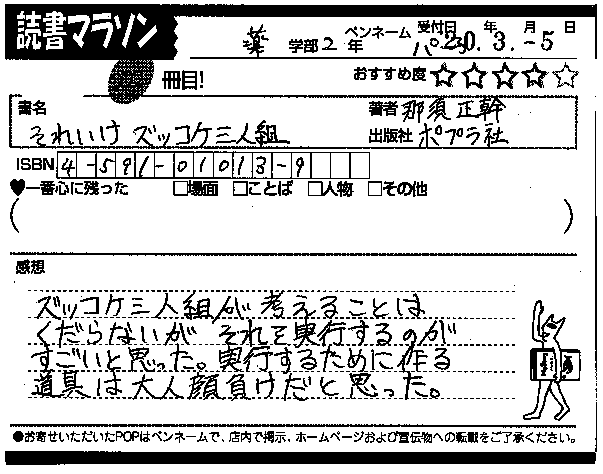 読書マラソン
薬 学部 2 年 ペンネーム 受付日 年 月 日
20. 3. -5
冊目!
おすすめ度 ☆☆☆☆☆
書名 それいけ ズッコケ三人組
著者 那須 正幹
出版社 ポプラ社
ISBN 4-591-01013-9
♥一番心に残った □場面 □ことば □人物 □その他
( )
感想
ズッコケ三人組が考えることは
くだらないが それを実行するのが
すごいと思った。実行するために作る
道具は大人顔負けだと思った。
●お寄せいただいたPOPはペンネームで、店内で掲示、ホームページおよび宣伝物への転載をご了承ください。